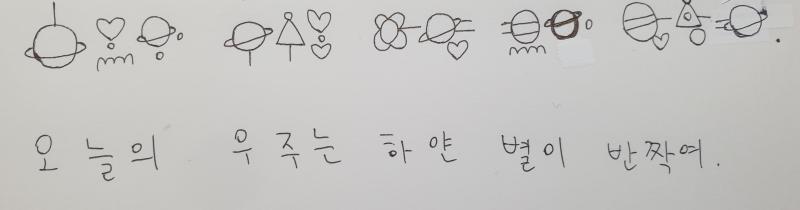 오늘의 우주는 하얀 별이 반짝여.